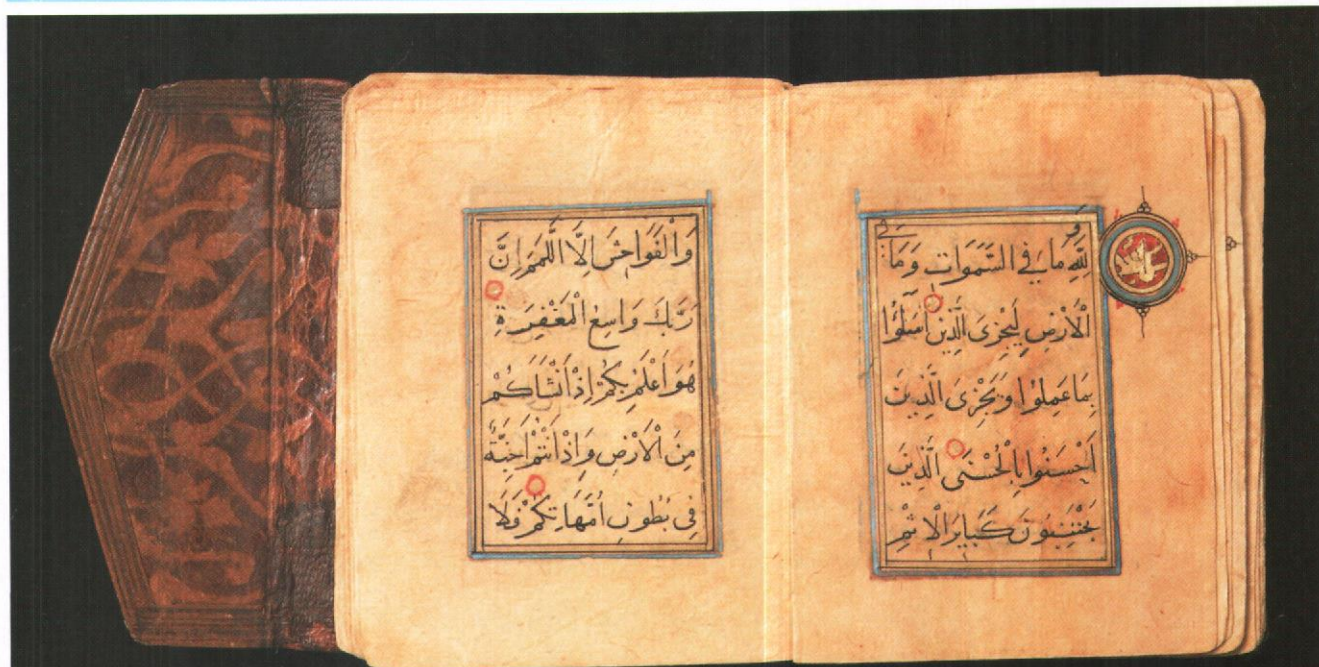 وَلِلّٰهِ مَا فِي السَّمَوَاتِ وَمَا فِي
الْأَرْضِ لِيَجْزِىَ الَّذِينَ أَسَاؤُا
بِمَا عَمِلُوا وَيَجْزِىَ الَّذِينَ
اَحْسَنُوا بِالْحُسْنَى الَّذِينَ
يَجْتَنِبُونَ كَبَايِرَ الْاِثْمِ
وَالْفَوَاحِشَ اِلَّا اللَّمَمَ اِنَّ
رَبَّكَ وَاسِعُ الْمَغْفِرَةِ
هُوَ اَعْلَمُ بِكُمْ اِذْ اَنْشَاَكُمْ
مِنَ الْاَرْضِ وَاِذْ اَنْتُمْ اَجِنَّةٌ
فِى بُطُونِ اُمَّهَاتِكُمْ فَلَا